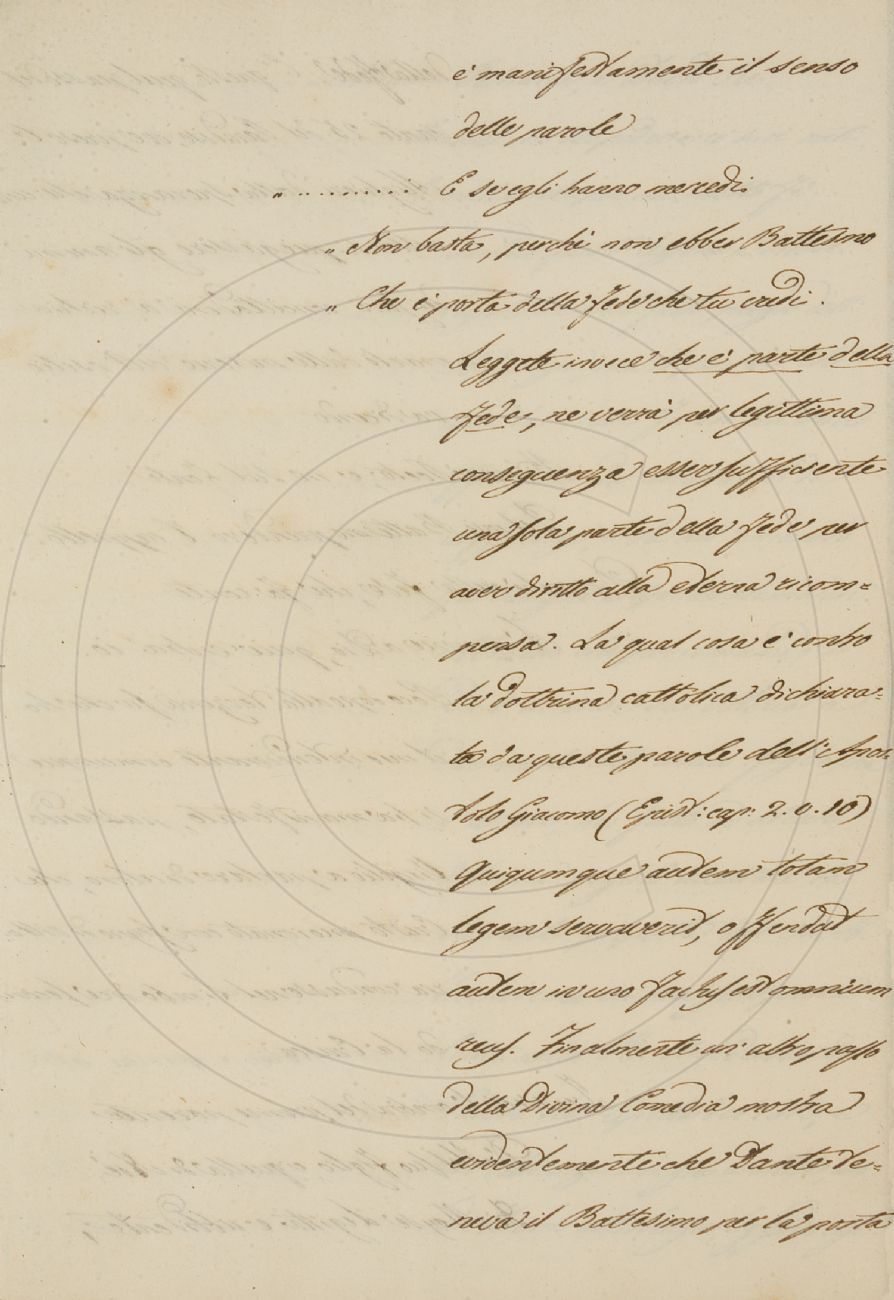 è manifestamente il senso
delle parole
" . . . . . . . . . . E s'egli hanno mercedi
" Non basta, perchè non ebber Battesmo
" Che è porta della Fede che tu credi.
Leggete invece che è parte della
Fede, ne verrà per legittima
conseguenza esser sufficiente
una sola parte della Fede per
aver diritto alla eterna ricom=
pensa. La qual cosa è contro
la dottrina cattolica dichiara=
ta da queste parole dell'Apos=
tolo Giacomo (Epist: cap: 2. v. 10)
Quiqumque autem totam
legem servaverit, offendat
autem in uno factus est omnium
reus. Finalmente un altro passo
della Divina Comedia mostra
evidentemente che Dante te=
neva il Battesimo per la porta